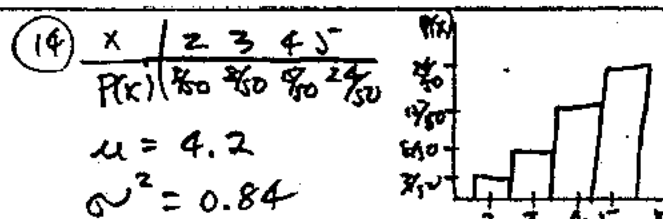 (14) x | 2 3 4 5
P(x) | 3/50 8/50 15/50 24/50
μ = 4.2
σ² = 0.84
P(x)
24/50
15/50
8/50
3/50
2 3 4 5